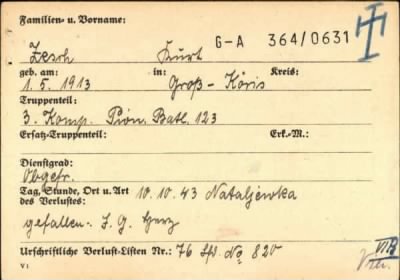 Familien- u. Vorname:
G-A 364/0631
Zesch Kurt
geb. am: in: Kreis:
1. 5. 1913 Groß-Köris
Truppenteil:
3. Komp. Pion. Batl. 123
Ersatz-Truppenteil: Erk.-M.:
Dienstgrad:
Obgefr.
Tag, Stunde, Ort u. Art 10. 10. 43 Nataljewka
des Verlustes:
gefallen. I. G. Herz
Urschriftliche Verlust-Listen Nr.: 76 lfd. No 820
V1